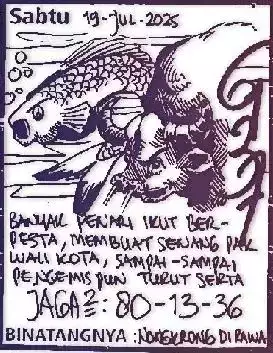 Sabtu 19-JUL-2025
BANYAK PENARI IKUT BER-
PESTA, MEMBUAT SENANG PAK
WALI KOTA, SAMPAI-SAMPAI
PENGEMIS PUN TURUT SERTA
JAGA²: 80-13-36
BINATANGNYA : NONGKRONG DI RAWA